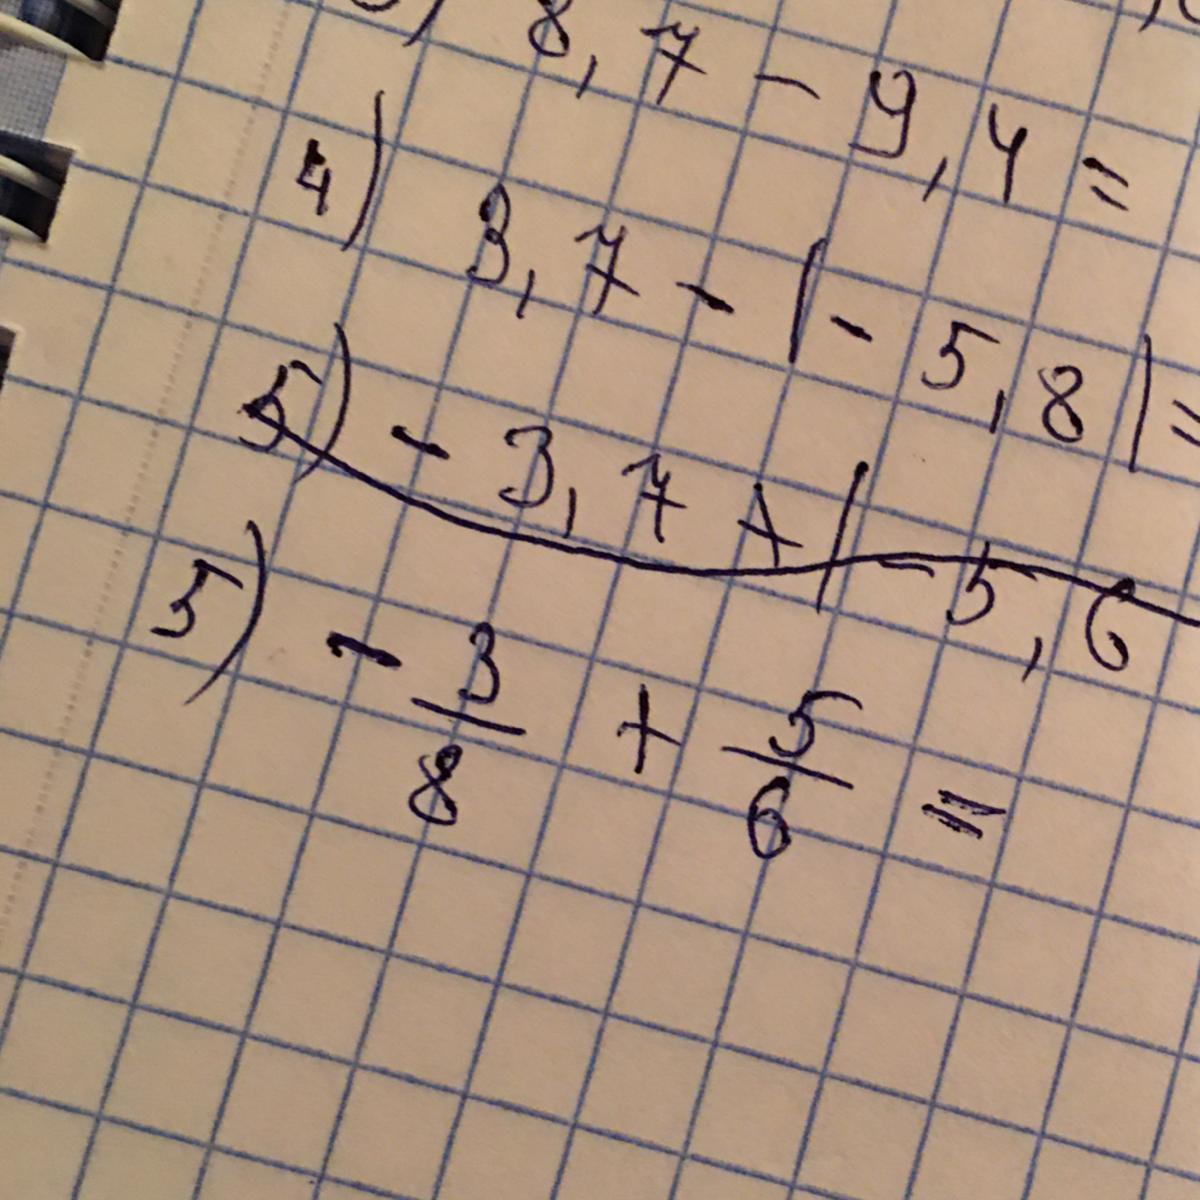 ) 8,7 - 9,4 =
4) 3,7 - |- 5,8| =
5) - 3,7 + |- 5,6
5) - 3/8 + 5/6 =